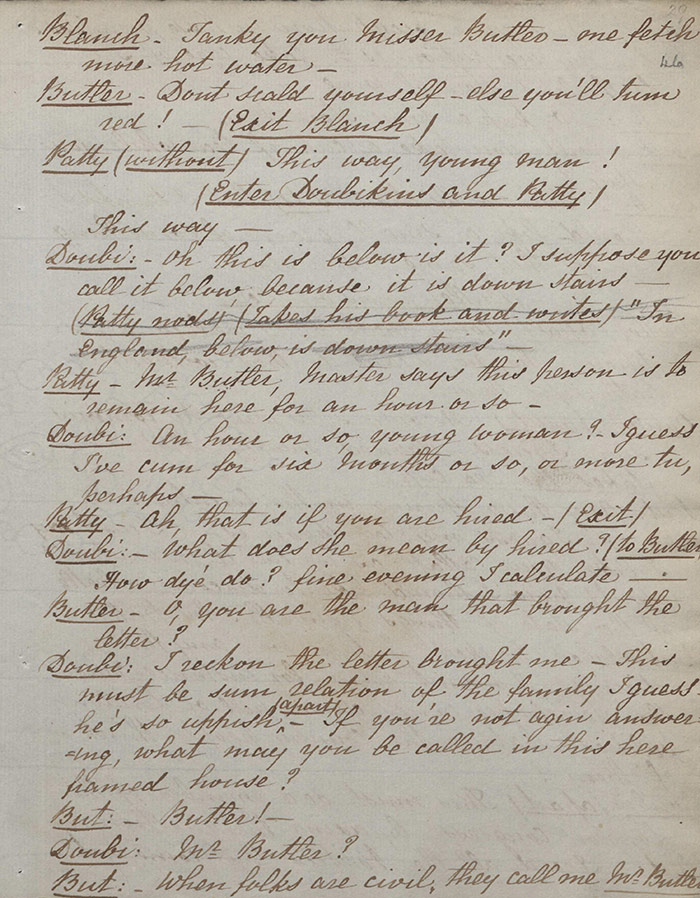 Blanch - Tanky you Misser Butler - me fetch
more hot water -
Butler - Dont scald yourself - else you'll turn
red! - (Exit Blanch)
Patty (without) This way, young man!
(Enter Doubikins and Patty)
This way -
Doubi: - Oh this is below is it? I suppose you
call it below, because it is down stairs -
(Patty nods) (Takes his book and writes) "In
England, below, is down stairs" -
Patty - Mr Butler, Master says this person is to
remain here for an hour or so -
Doubi: An hour or so, young woman? - I guess
I've cum for six months or so, or more tu,
perhaps -
Patty - Ah, that is if you are hired - (Exit)
Doubi: - What does she mean by hired? (to Butler)
How dyé do? fine evening I calculate -
Butler - O, you are the man that brought the
letter?
Doubi: I reckon the letter brought me - This
must be sum relation of the family I guess
he's so uppish (apart) - If you're not agin answer
=ing, what may you be called in this here
framed house?
But: - Butler! -
Doubi: Mr Butler?
But: - When folks are civil, they call me Mr Butler